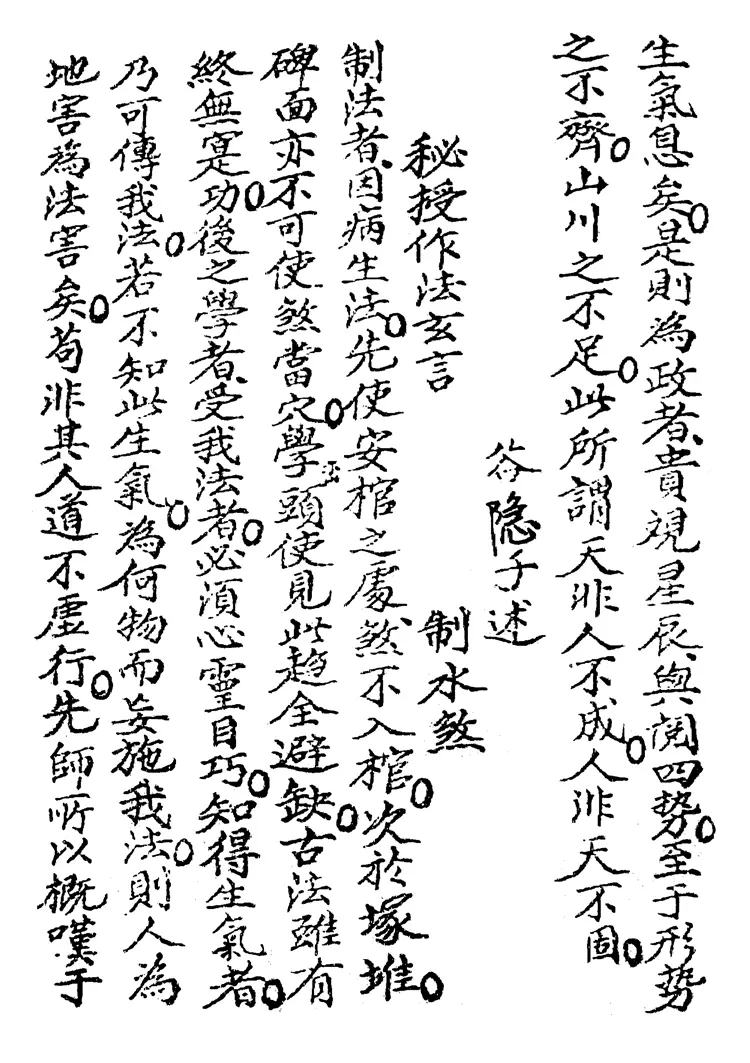 生氣息矣。是則為政者、貴視星辰、與閱四勢。至于形勢
之不齊。山川之不足。此所謂天非人不成。人非天不固。
谷隱子述
秘授作法玄言 制水煞
制法者、因病生法。先使安棺之處、煞不入棺。次於塚堆。
碑面亦不可使煞當穴。學頭使見此趋全避缺。古法雖有
終無寔功。後之學者、受我法者。必須心靈目巧。知得生氣者。
乃可傳我法。若不知此生氣。為何物而妄施我法。則人為
地害為法害矣。苟非其人道不虛行。先師所以概嘆于